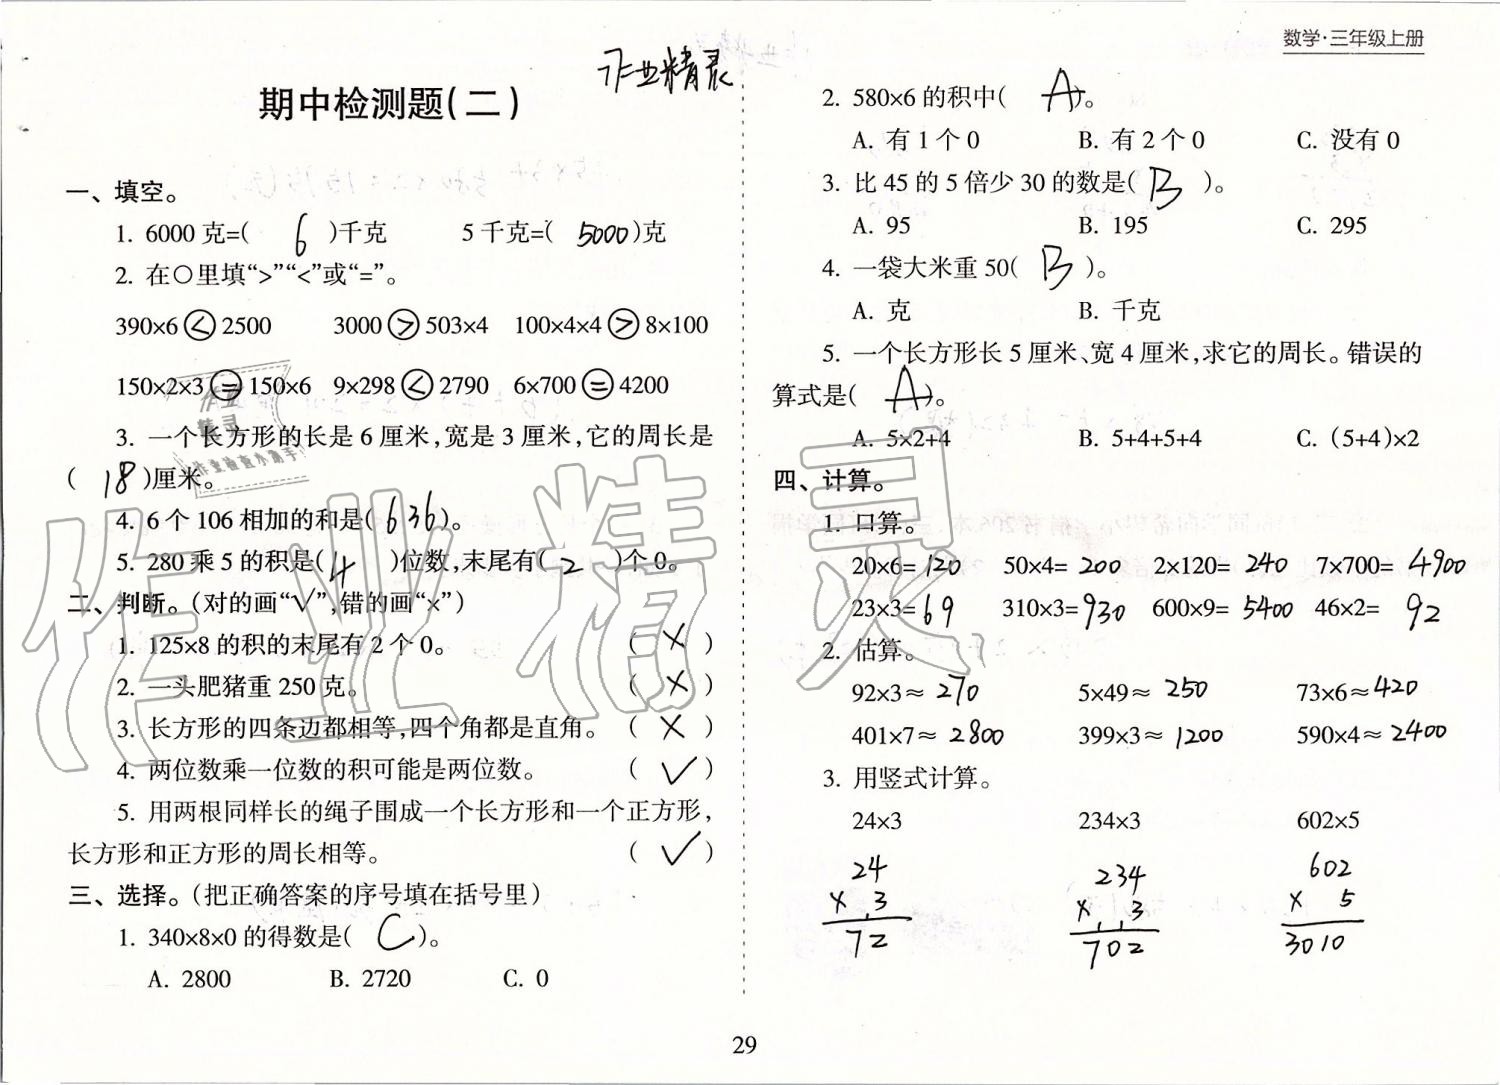 数学·三年级上册
作业精灵
期中检测题(二)
一、填空。
1. 6000克=( 6 )千克 5千克=( 5000 )克
2. 在○里填“>”“<”或“=”。
390×6 < 2500 3000 > 503×4 100×4×4 > 8×100
150×2×3 = 150×6 9×298 < 2790 6×700 = 4200
3. 一个长方形的长是6厘米,宽是3厘米,它的周长是
( 18 )厘米。
4. 6个106相加的和是( 636 )。
5. 280乘5的积是( 4 )位数,末尾有( 2 )个0。
二、判断。(对的画“√”,错的画“×”)
1. 125×8的积的末尾有2个0。 ( × )
2. 一头肥猪重250克。 ( × )
3. 长方形的四条边都相等,四个角都是直角。 ( × )
4. 两位数乘一位数的积可能是两位数。 ( √ )
5. 用两根同样长的绳子围成一个长方形和一个正方形,
长方形和正方形的周长相等。 ( √ )
三、选择。(把正确答案的序号填在括号里)
1. 340×8×0的得数是( C )。
A. 2800 B. 2720 C. 0
2. 580×6的积中( A )。
A. 有1个0 B. 有2个0 C. 没有0
3. 比45的5倍少30的数是( B )。
A. 95 B. 195 C. 295
4. 一袋大米重50( B )。
A. 克 B. 千克
5. 一个长方形长5厘米、宽4厘米,求它的周长。错误的
算式是( A )。
A. 5×2+4 B. 5+4+5+4 C. (5+4)×2
四、计算。
1. 口算。
20×6= 120 50×4= 200 2×120= 240 7×700= 4900
23×3= 69 310×3= 930 600×9= 5400 46×2= 92
2. 估算。
92×3≈ 270 5×49≈ 250 73×6≈ 420
401×7≈ 2800 399×3≈ 1200 590×4≈ 2400
3. 用竖式计算。
24×3 234×3 602×5
24 234 602
× 3 × 3 × 5
72 702 3010
作业精灵
29